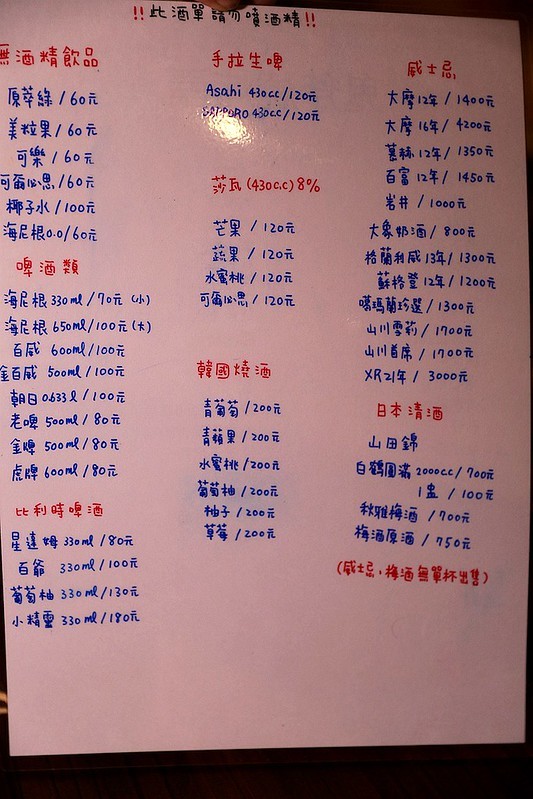 !!此酒單請勿噴酒精!!
無酒精飲品
原萃綠/60元
美粒果/60元
可樂/60元
可爾必思/60元
椰子水/100元
海尼根0.0/60元
啤酒類
海尼根 330ml/70元 (小)
海尼根 650ml/100元 (大)
百威 600ml/100元
金百威 500ml/100元
朝日 0.633l/100元
老啤 500ml/80元
金牌 500ml/80元
虎牌 600ml/80元
比利時啤酒
星達姆 330ml/80元
百爺 330ml/100元
葡萄柚 330ml/130元
小精靈 330ml/180元
手拉生啤
Asahi 430cc/120元
SAPPORO 430cc/120元
莎瓦(430c.c)8%
芒果/120元
蔬果/120元
水蜜桃/120元
可爾必思/120元
韓國燒酒
青葡萄/200元
青蘋果/200元
水蜜桃/200元
葡萄柚/200元
柚子/200元
草莓/200元
威士忌
大摩12年/1400元
大摩16年/4200元
慕赫12年/1350元
百富12年/1450元
岩井/1000元
大象奶酒/800元
格蘭利威13年/1300元
蘇格登12年/1200元
噶瑪蘭珍選/1300元
山川雪莉/1700元
山川首席/1700元
XR21年/3000元
日本清酒
山田錦
白鶴圓滿2000cc/700元
1盅/100元
秋雅梅酒/700元
梅酒原酒/750元
(威士忌,梅酒無單杯出售)